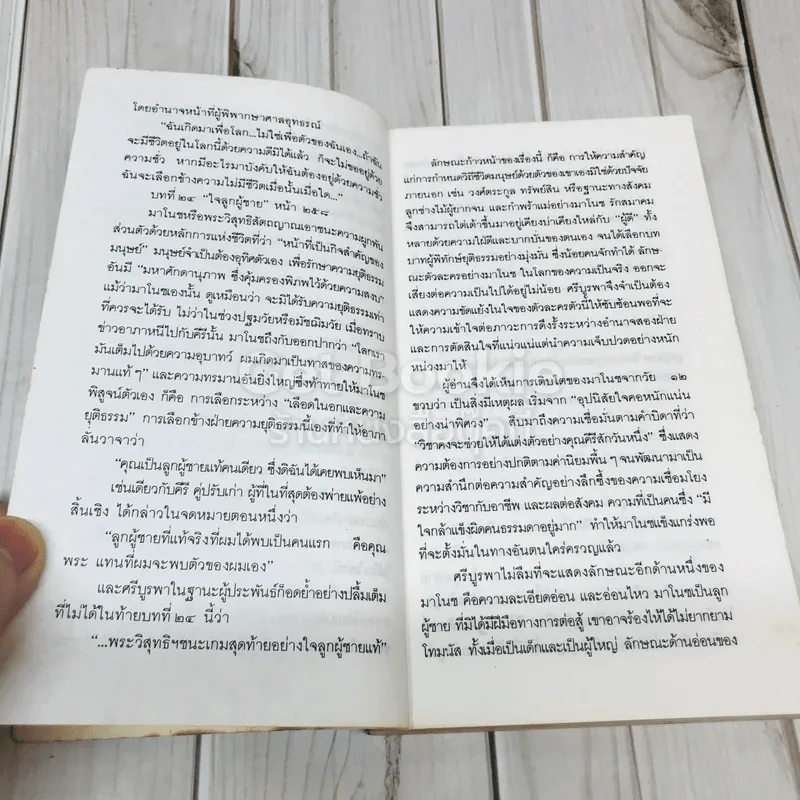 โดยอำนาจหน้าที่ผู้พิพากษาศาลอุทธรณ์
“ฉันเกิดมาเพื่อโลก...ไม่ใช่เพื่อตัวของฉันเอง...ถ้าฉัน
จะมีชีวิตอยู่ในโลกนี้ด้วยความดีมิได้แล้ว ก็จะไม่ขออยู่ด้วย
ความชั่ว หากมีอะไรมาบังคับให้ฉันต้องอยู่ด้วยความชั่ว
ฉันจะเลือกข้างความไม่มีชีวิตเมื่อนั้นเมื่อใด...”
บทที่ ๒๔ “ใจลูกผู้ชาย” หน้า ๒๕๘
มาโนชหรือพระวิสุทธิสัตถญาณเอาชนะความผูกพัน
ส่วนตัวด้วยหลักการแห่งชีวิตที่ว่า “หน้าที่เป็นกิจสำคัญของ
มนุษย์” มนุษย์จำเป็นต้องอุทิศตัวเอง เพื่อรักษาความยุติธรรม
อันมี “มหาศักดานุภาพ ซึ่งคุ้มครองพิภพไว้ด้วยความสงบ”
แม้ว่ามาโนชเองนั้น ดูเหมือนว่า จะมิได้รับความยุติธรรมเท่า
ที่ควรจะได้รับ ไม่ว่าในช่วงปฐมวัยหรือมัชฌิมวัย เมื่อทราบ
ข่าวอาภาหนีไปกับคีรีนั้น มาโนชถึงกับออกปากว่า “โลกเรา
มันเต็มไปด้วยความอุบาทว์ ผมเกิดมาเป็นทาสของความทร-
มานแท้ ๆ” และความทรมานอันยิ่งใหญ่ซึ่งท้าทายให้มาโนช
พิสูจน์ตัวเอง ก็คือ การเลือกระหว่าง “เลือดในอกและความ
ยุติธรรม” การเลือกข้างฝ่ายความยุติธรรมนี้เองที่ทำให้อาภา
ลั่นวาจาว่า
“คุณเป็นลูกผู้ชายแท้คนเดียว ซึ่งดิฉันได้เคยพบเห็นมา”
เช่นเดียวกับคีรี คู่ปรับเก่า ผู้ที่ในที่สุดต้องพ่ายแพ้อย่าง
สิ้นเชิง ได้กล่าวในจดหมายตอนหนึ่งว่า
“ลูกผู้ชายที่แท้จริงที่ผมได้พบเป็นคนแรก คือคุณ
พระ แทนที่ผมจะพบตัวของผมเอง”
และศรีบูรพาในฐานะผู้ประพันธ์ก็อดย้ำอย่างปลื้มเต็ม
ที่ไม่ได้ในท้ายบทที่ ๒๔ นี้ว่า
“...พระวิสุทธิฯชนะเกมสุดท้ายอย่างใจลูกผู้ชายแท้”
ลักษณะก้าวหน้าของเรื่องนี้ ก็คือ การให้ความสำคัญ
แก่การกำหนดวิถีชีวิตมนุษย์ด้วยตัวของเขาเองมิใช่ด้วยปัจจัย
ภายนอก เช่น วงศ์ตระกูล ทรัพย์สิน หรือฐานะทางสังคม
ลูกช่างไม้ผู้ยากจน และกำพร้าแม่อย่างมาโนช รักสมาคม
จึงสามารถไต่เต้าขึ้นมาอยู่เคียงบ่าเคียงไหล่กับ “ผู้ดี” ทั้ง
หลายด้วยความใฝ่ดีและบากบั่นของตนเอง จนได้เลือกบท
บาทผู้พิทักษ์ยุติธรรมอย่างมุ่งมั่น ซึ่งน้อยคนจักทำได้ ลักษ
ณะตัวละครอย่างมาโนช ในโลกของความเป็นจริง ออกจะ
เสี่ยงต่อความเป็นไปได้อยู่ไม่น้อย ศรีบูรพาจึงจำเป็นต้อง
แสดงความขัดแย้งในใจของตัวละครตัวนี้ให้ซับซ้อนพอที่จะ
ให้ความเข้าใจต่อภาวะการดึงรั้งระหว่างอำนาจสองฝ่าย
และการตัดสินใจที่แน่วแน่แต่นำความเจ็บปวดอย่างหนัก
หน่วงมาให้
ผู้อ่านจึงได้เห็นการเติบโตของมาโนชจากวัย ๑๒
ขวบว่า เป็นสิ่งมีเหตุผล เริ่มจาก “อุปนิสัยใจคอหนักแน่น
อย่างน่าพิศวง” สืบมาถึงความเชื่อมั่นตามคำบิดาที่ว่า
“วิชาคงจะช่วยให้ได้แต่งตัวอย่างคุณคีรีสักวันหนึ่ง” ซึ่งแสดง
ความต้องการอย่างปกติตามค่านิยมพื้น ๆ จนพัฒนามาเป็น
ความสำนึกต่อความสำคัญอย่างลึกซึ้งของความเชื่อมโยง
ระหว่างวิชากับอาชีพ และผลต่อสังคม ความที่เป็นคนซึ่ง “มี
ใจกล้าแข็งผิดคนธรรมดาอยู่มาก” ทำให้มาโนชแข็งแกร่งพอ
ที่จะตั้งมั่นในทางอันตนใคร่ครวญแล้ว
ศรีบูรพาไม่ลืมที่จะแสดงลักษณะอีกด้านหนึ่งของ
มาโนช คือความละเอียดอ่อน และอ่อนไหว มาโนชเป็นลูก
ผู้ชาย ที่มิได้มีฝีมือทางการต่อสู้ เขาอาจร้องไห้ได้ไม่ยากยาม
โทมนัส ทั้งเมื่อเป็นเด็กและเป็นผู้ใหญ่ ลักษณะด้านอ่อนของ